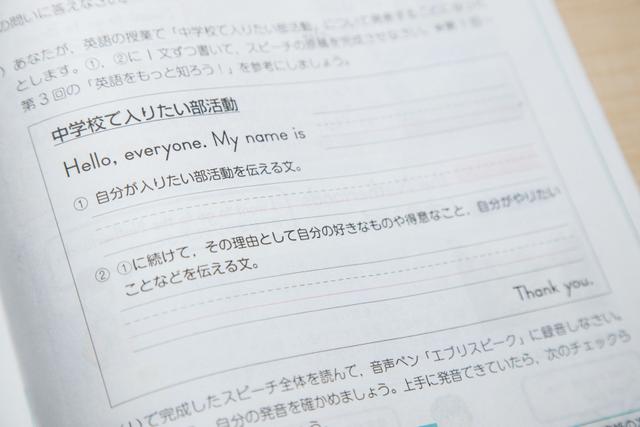 の問いに答えなさい。
あなたが，英語の授業で「中学校で入りたい部活動」について発表することになった
とします。①，②に1文ずつ書いて，スピーチの原稿を完成させなさい。
第3回の「英語をもっと知ろう！」を参考にしましょう。
中学校で入りたい部活動
Hello, everyone. My name is
① 自分が入りたい部活動を伝える文。
② ①に続けて，その理由として自分の好きなものや得意なこと，自分がやりたい
ことなどを伝える文。
Thank you.
いて完成したスピーチ全体を読んで，音声ペン「エブリスピーク」に録音しなさい。
自分の発音を確かめましょう。上手に発音できていたら，次のチェックら